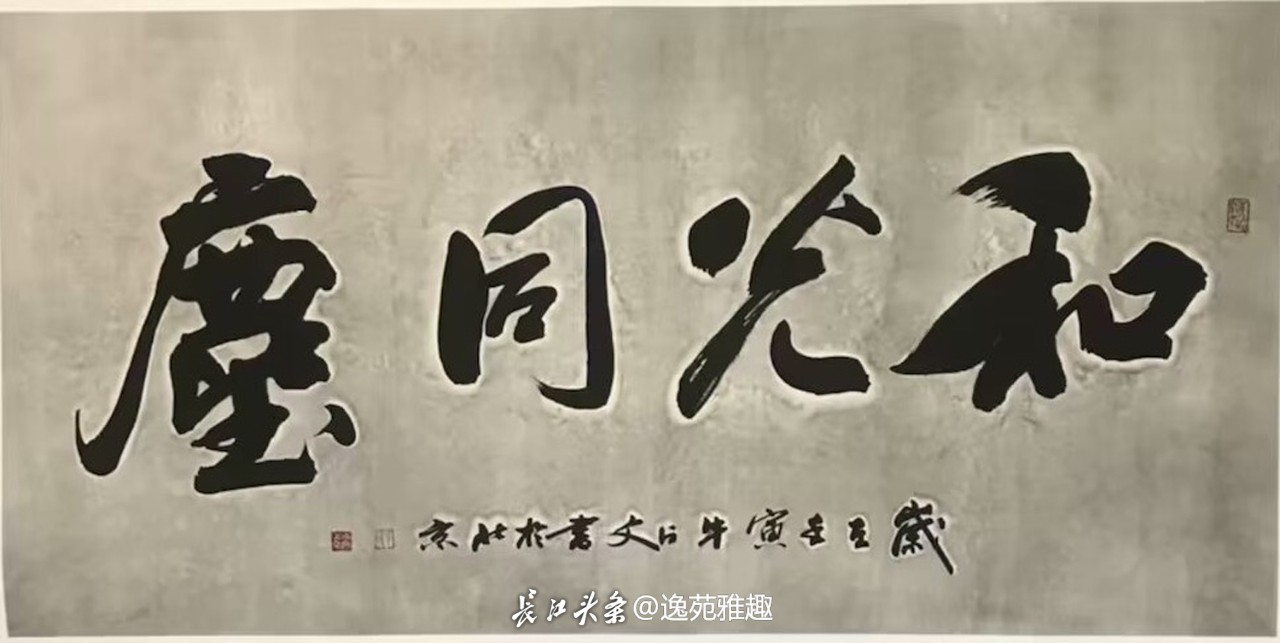 和光同塵
歲在壬寅文書於北京
长江头条@逸苑雅趣